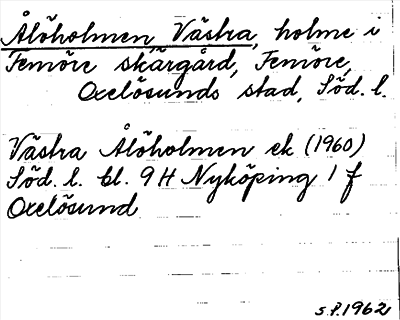 Ålöholmen, Västra, holme i
Femöre skärgård, Femöre,
Oxelösunds stad, Söd. l.
Västra Ålöholmen ek (1960)
Söd. l. bl. 9H Nyköping 1 f
Oxelösund
s.f. 1962